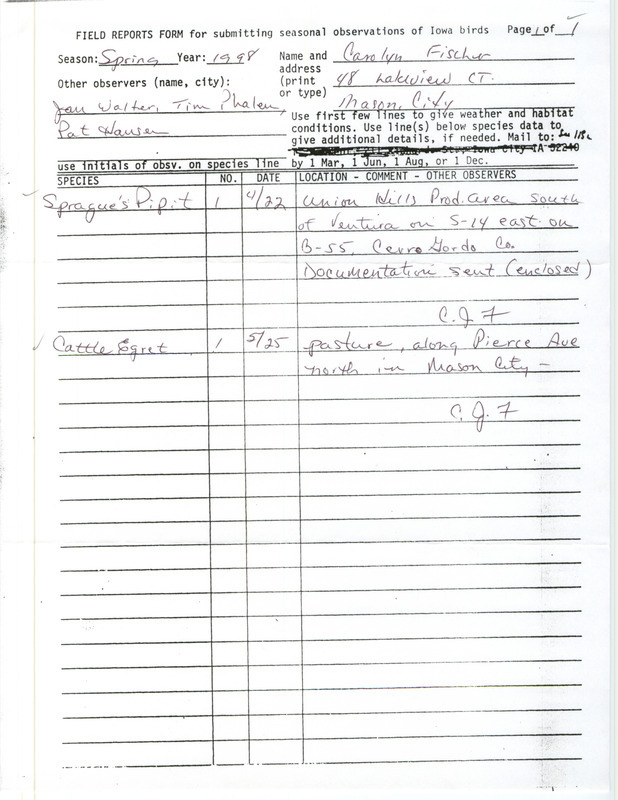 FIELD REPORTS FORM for submitting seasonal observations of Iowa birds Page 1 of 1
Season: Spring Year: 1998 Name and Carolyn Fischer
address
Other observers (name, city): (print 48 Lakeview CT.
or type) Mason City
Jan Walter, Tim Phalen,
Pat Hansen
Use first few lines to give weather and habitat
conditions. Use line(s) below species data to
give additional details, if needed. Mail to:
Iowa City IA 52240
use initials of obsv. on species line by 1 Mar, 1 Jun, 1 Aug, or 1 Dec.
SPECIES NO. DATE LOCATION - COMMENT - OTHER OBSERVERS
Sprague's Pipit 1 4/22 Union Hills Prod. area south
of Ventura on S-14 east on
B-55, Cerro Gordo Co.
Documentation sent (enclosed)
C.J.F
Cattle Egret 1 5/25 pasture, along Pierce Ave
north in Mason City -
C.J.F